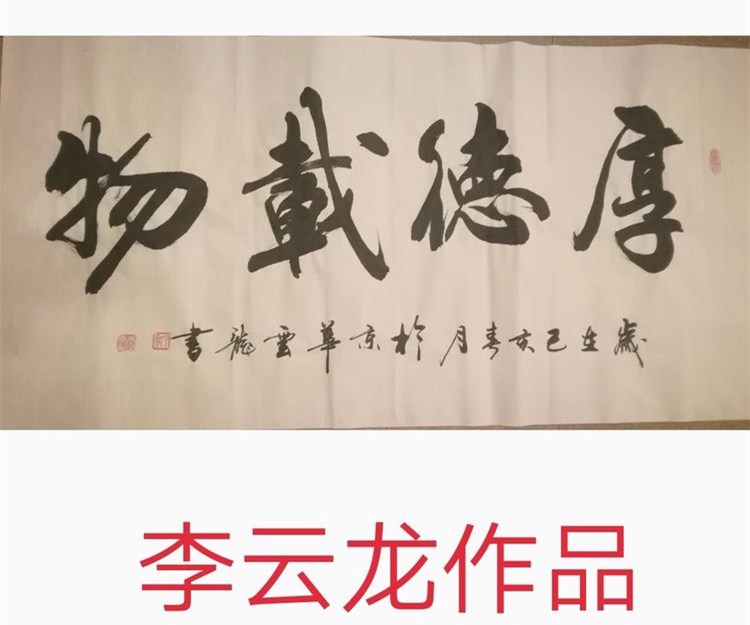 厚德載物
歲在己亥春月於京華雲龍書
李云龙作品